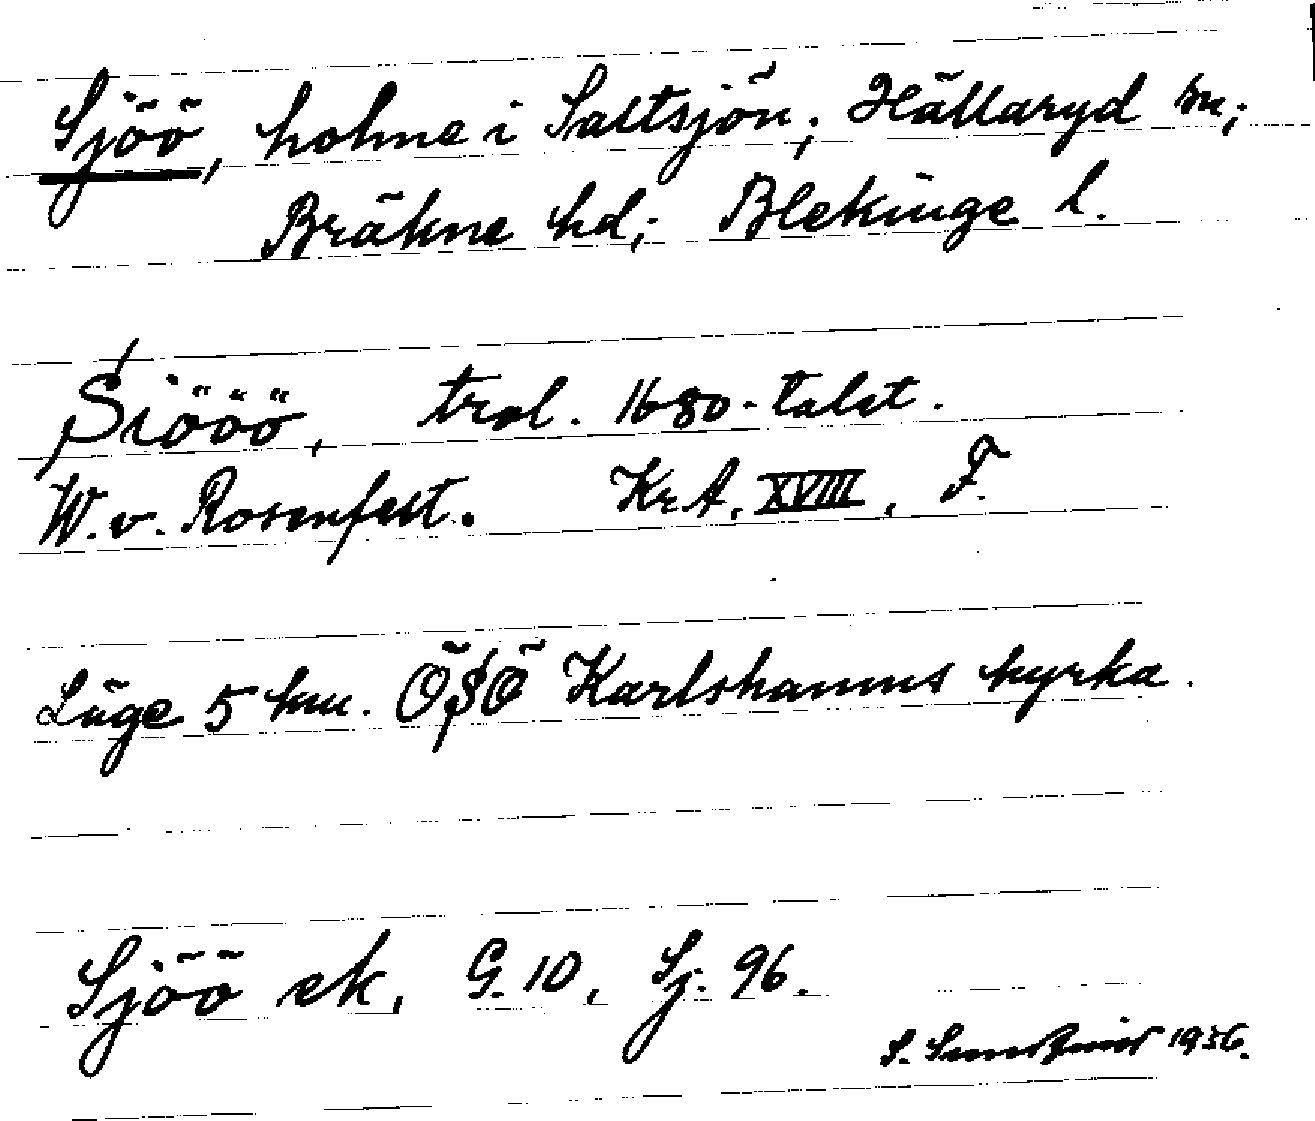 Sjöö, holme i Saltsjön; Hällaryd sn;
Bräkne hd; Blekinge l.
Siööö, trol. 1680-talet.
W. v. Rosenfelt. KrA, XVIII, F.
Läge 5 km. ÖSÖ Karlshamns kyrka.
Sjöö ek, G. 10, Sj. 96.
S. 1936.